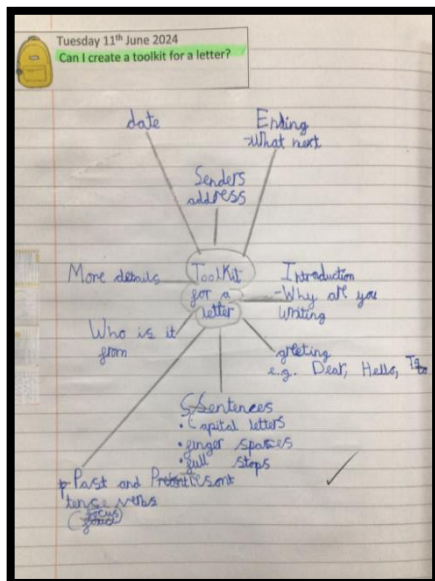 Tuesday 11th June 2024
Can I create a toolkit for a letter?
date
Ending
-What next
Senders
address
More details
Toolkit
for a
letter
Introduction
-Why are you
writing
Who is it
from
greeting
e.g. Dear, Hello, To
Sentences
• Capital letters
• finger spaces
• full stops
Past and Present
tense verbs